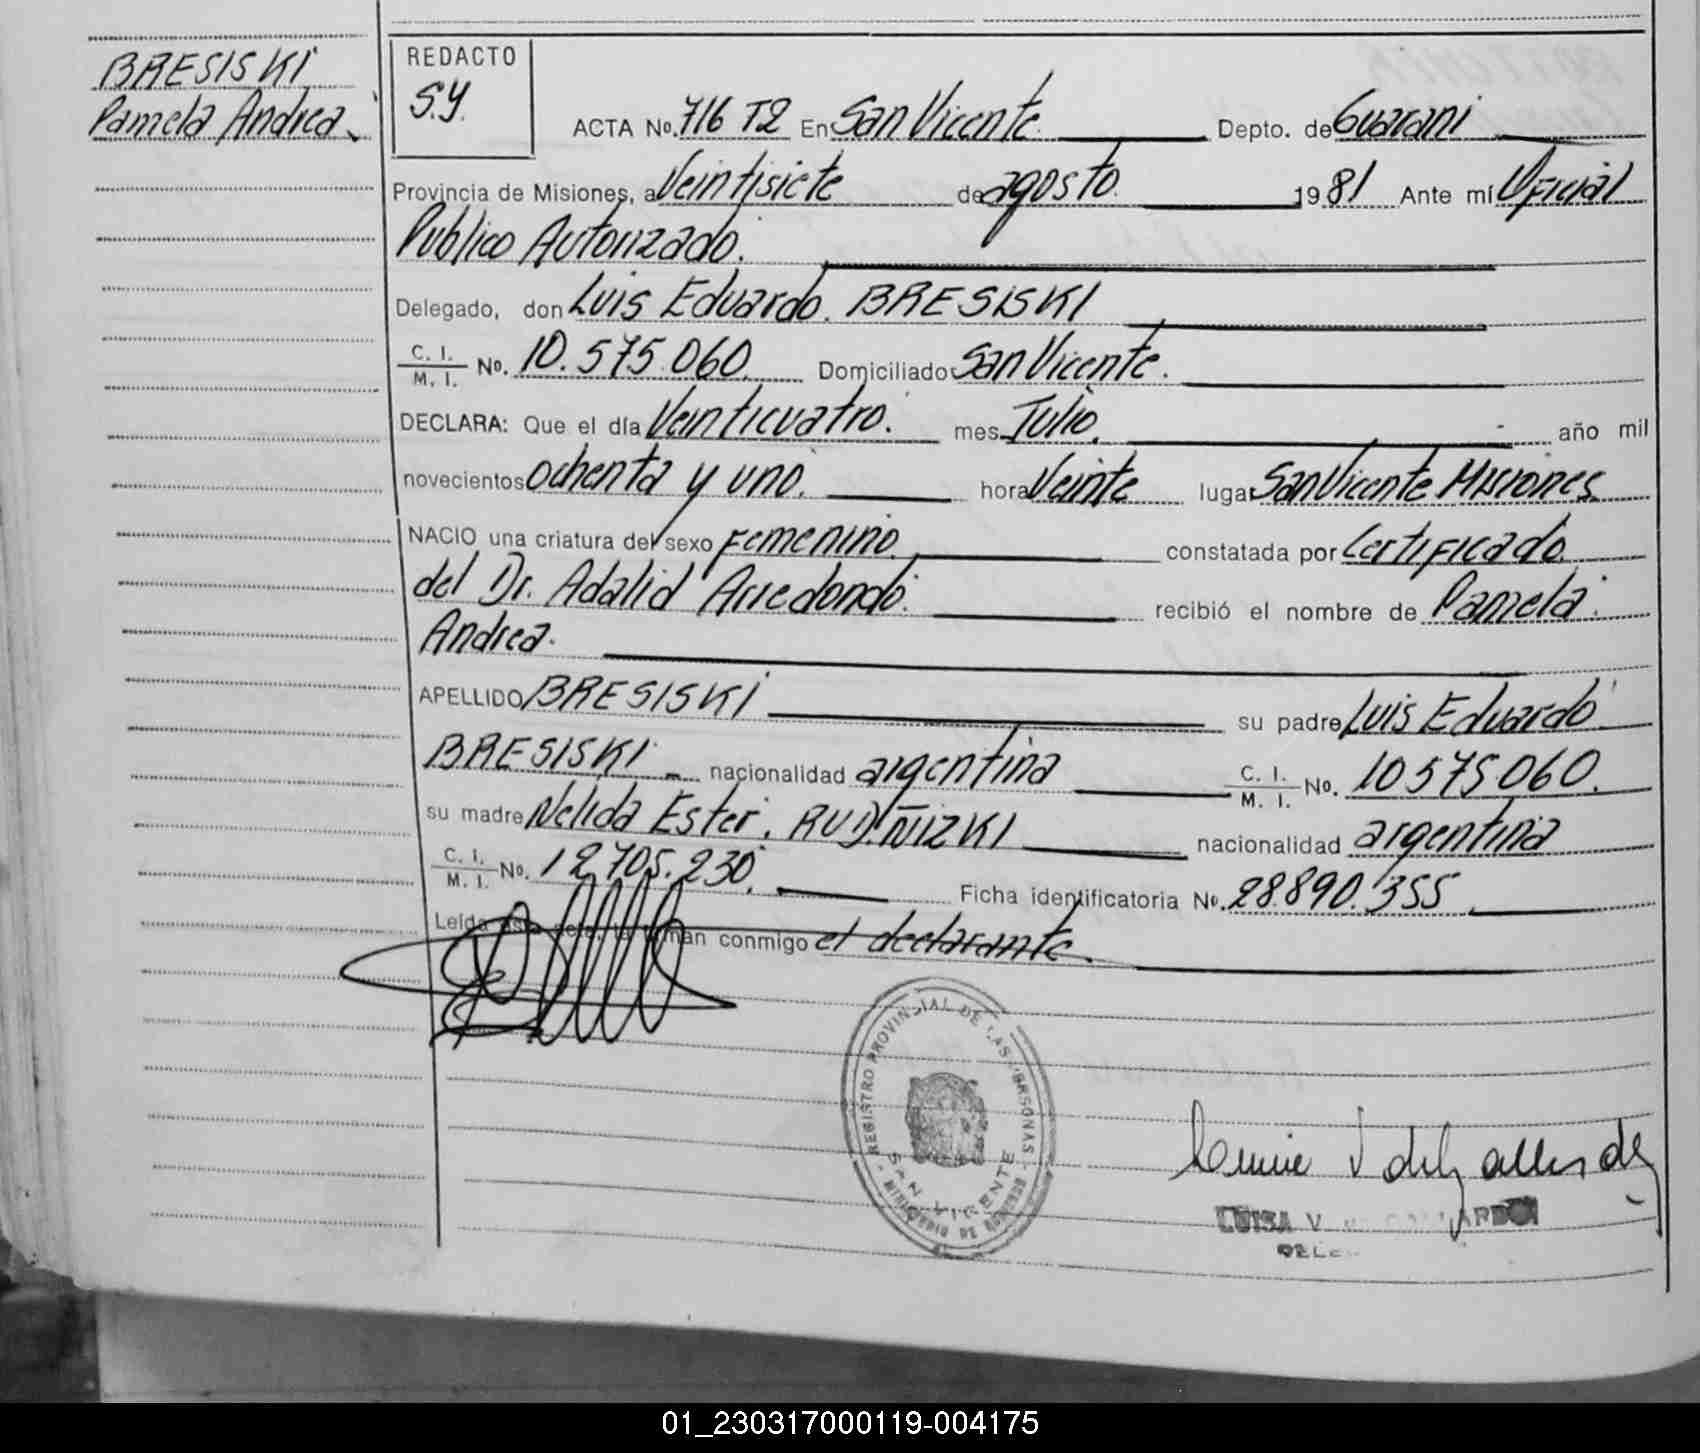 BRESISKI
Pamela Andrea
REDACTO
S.Y.
ACTA No. 716 T2 En San Vicente Depto. de Guarani
Provincia de Misiones, a Veintisiete de agosto. 1981 Ante mí Oficial
Publico Autorizado.
Delegado, don Luis Eduardo. BRESISKI
C. I. / M. I. No. 10.575.060 Domiciliado San Vicente.
DECLARA: Que el día Veinticuatro. mes Julio. año mil
novecientos ochenta y uno. hora Veinte lugar San Vicente Misiones
NACIO una criatura del sexo Femenino constatada por Certificado
del Dr. Adalid Arredondo. recibió el nombre de Pamela
Andrea.
APELLIDO BRESISKI su padre Luis Eduardo
BRESISKI nacionalidad argentina C. I. / M. I. No. 10575.060.
su madre Nelida Ester. RUDÑIZKI nacionalidad argentina
C. I. / M. I. No. 12.705.230. Ficha identificatoria No. 28.890.355
Leída esta acta, la firman conmigo el declarante.
REGISTRO PROVINCIAL DE LAS PERSONAS
SAN VICENTE
MINISTERIO DE GOBIERNO
LUISA V
01_230317000119-004175